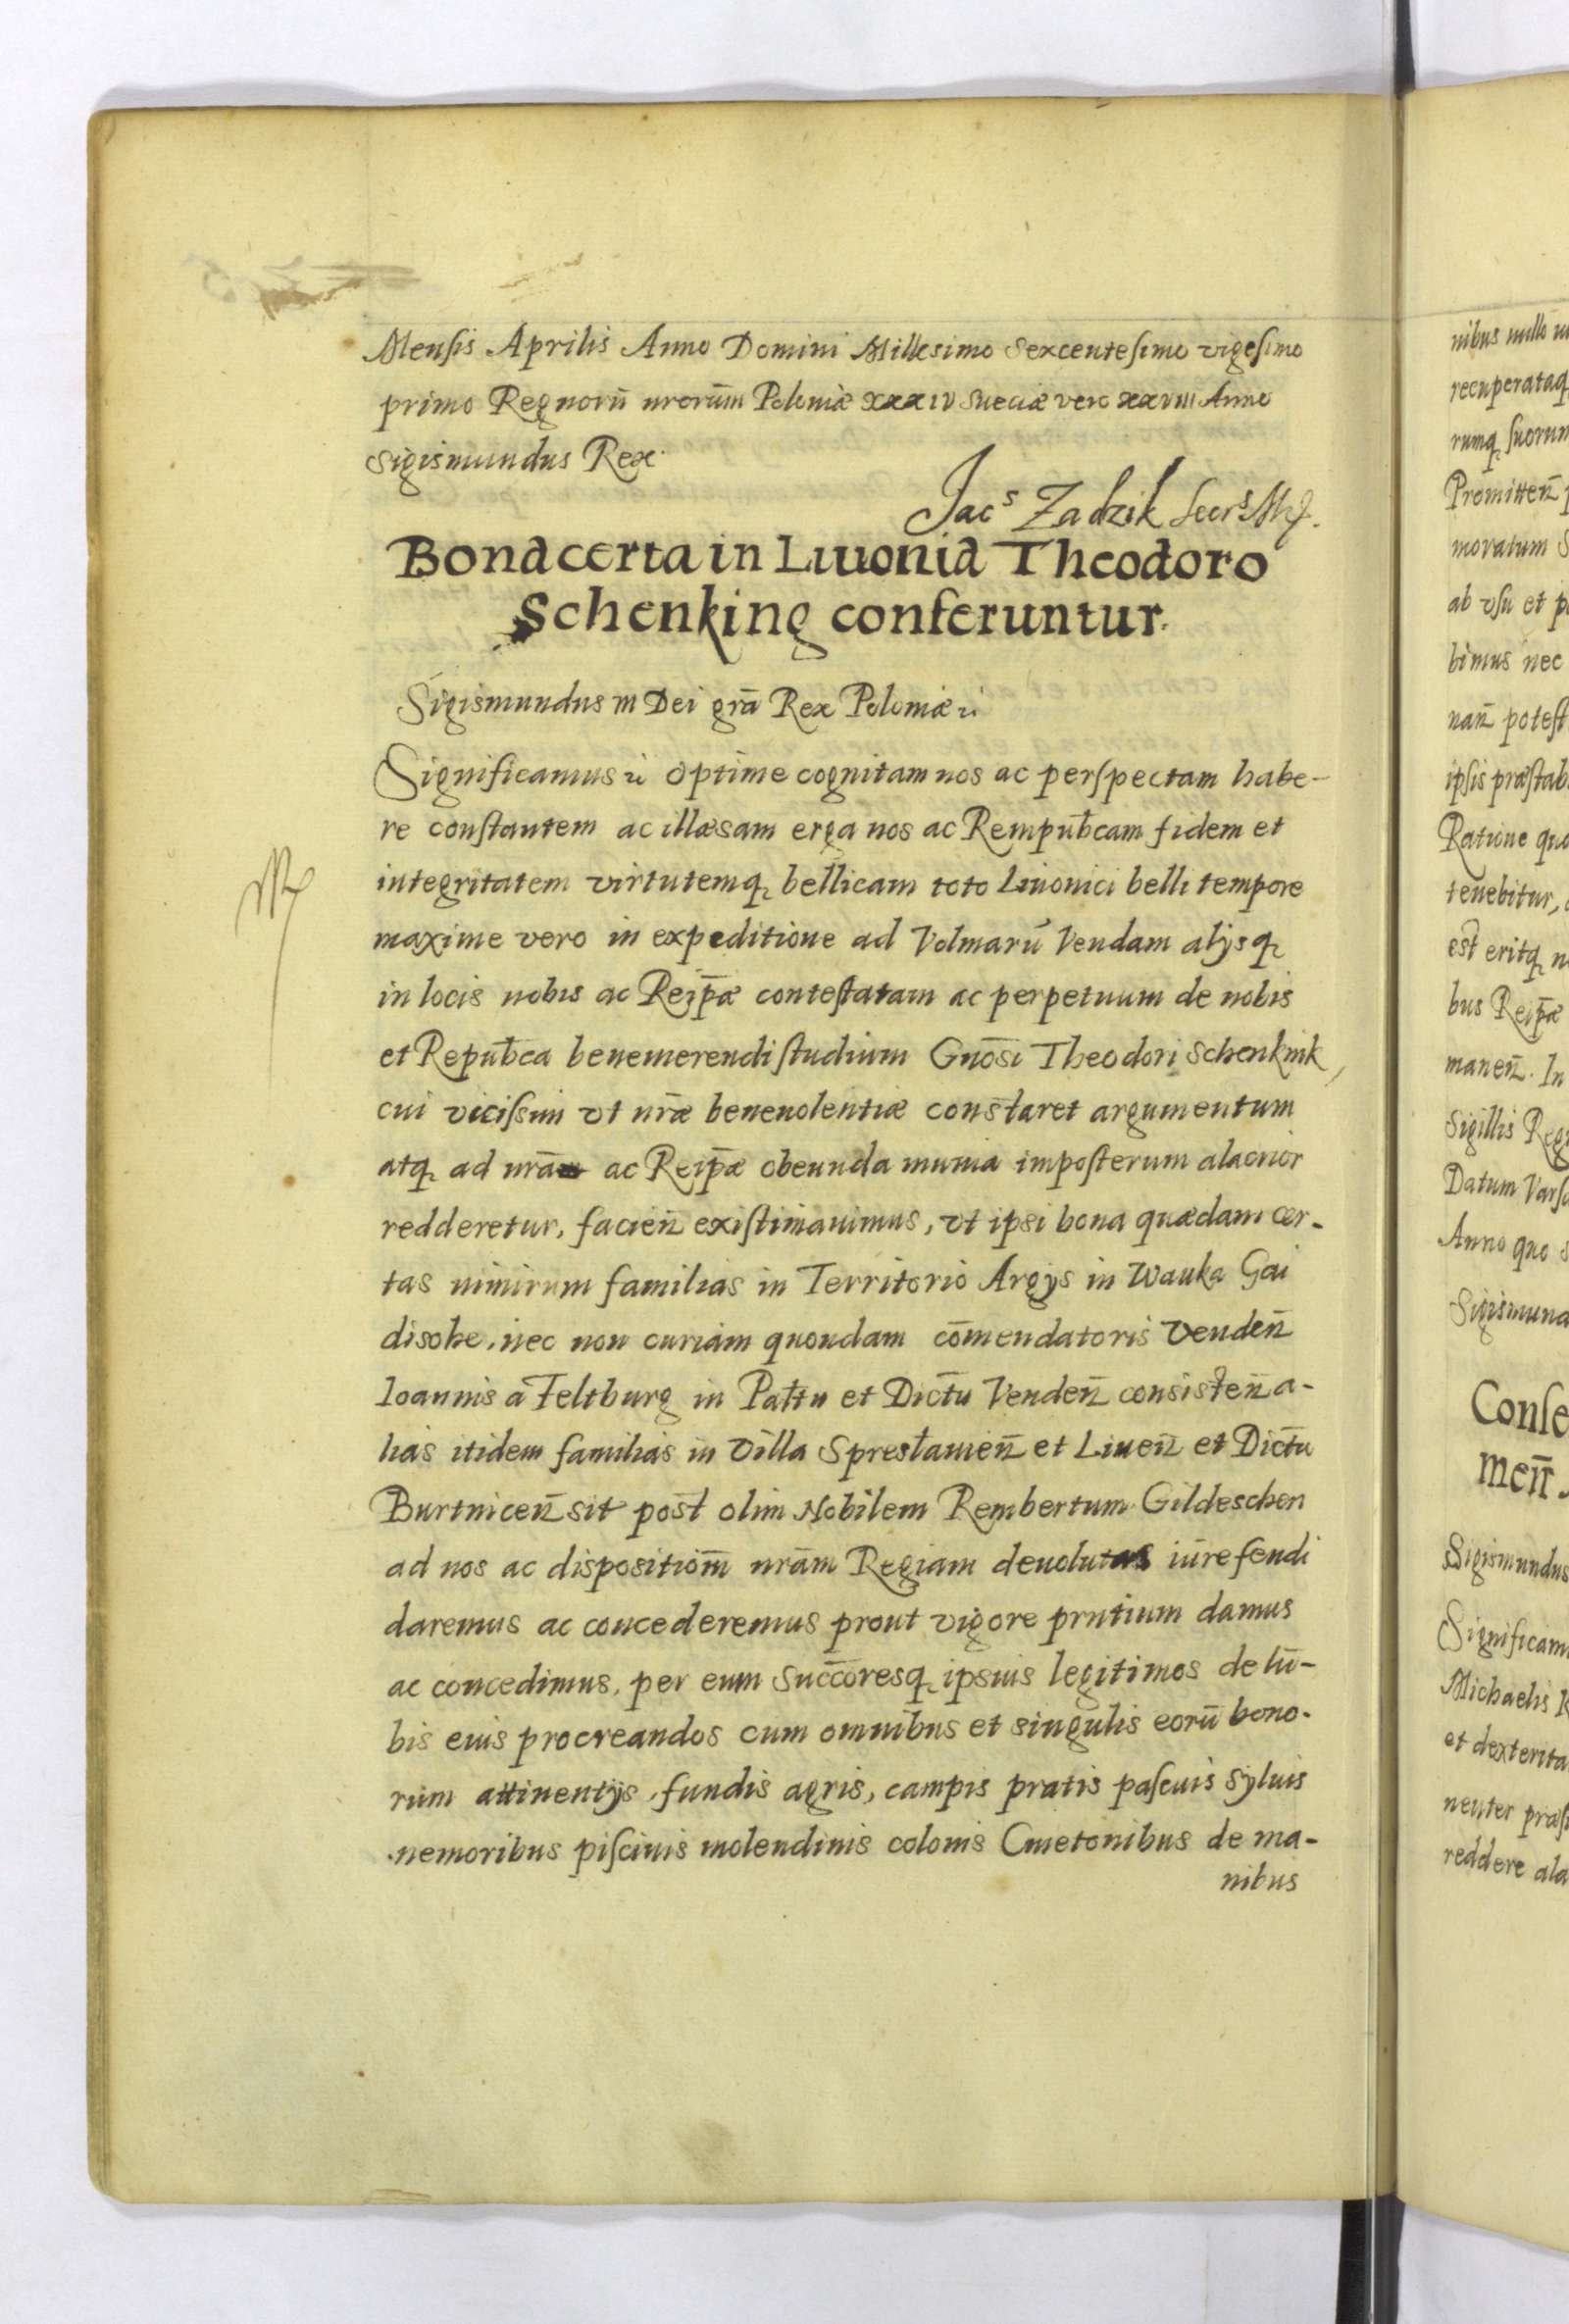 Mensis Aprilis Anno Domini Millesimo Sexcentesimo vigesimo
primo Regnorū nrorūm Poloniæ XXXIV Sueciæ vero XXVIII Anno
Sigismundus Rex.
Jacs Zadzik Secrs Mṣ.
Bona certa in Liuonia Theodoro
Schenking conferuntur.
Sigismundus III Dei grā Rex Poloniæ
Significamus optime cognitam nos ac perspectam habe-
re constantem ac illæsam erga nos ac Rempubcam fidem et
integritatem virtutemq bellicam toto Liuonici belli tempore
maxime vero in expeditione ad Volmarū Vendam alijsq
in locis nobis ac Reipæ contestatam ac perpetuum de nobis
et Repubca benemerendi studium Gnosi Theodori Schenknik,
cui vicissim vt nræ beneuolentiæ constaret argumentum
atq ad nrā ac Reipæ obeunda munia imposterum alacrior
redderetur, facien existimauimus, vt ipsi bona quædam cer-
tas nimirum familias in Territorio Argys in Wauka Gai
disohe, nec non curiam quondam cōmendatoris Venden
Ioannis a Feltburg in Pattu et Dictu Venden consisten a-
lias itidem familias in Villa Sprestauien et Liuen et Dictu
Burtnicen sit post olim Nobilem Rembertum Gildeschen
ad nos ac dispositiom nrām Regiam deuolutas iure feudi
daremus ac concederemus prout vigore prntium damus
ac concedimus, per eum Succoresq ipsius legitimos de lū-
bis eius procreandos cum omnibus et singulis eorū bono-
rum attinentijs, fundis agris, campis pratis pascuis syluis
nemoribus piscinis molendinis colonis Cmetonibus de ma-
nibus
nibus nullo
recuperataq
rumq suorum
Promitten
moratum
ab vsu et
bimus nec
nan potest
ipsis præstab
Ratione quo
tenebitur,
est eritq
bus Reipæ
manen. In
Sigillis Reg
Datum Vars
Anno quo
Sigismund
Conse
men.
Sigismundus
Significam
Michaelis
et dexterita
neuter præs
reddere ala